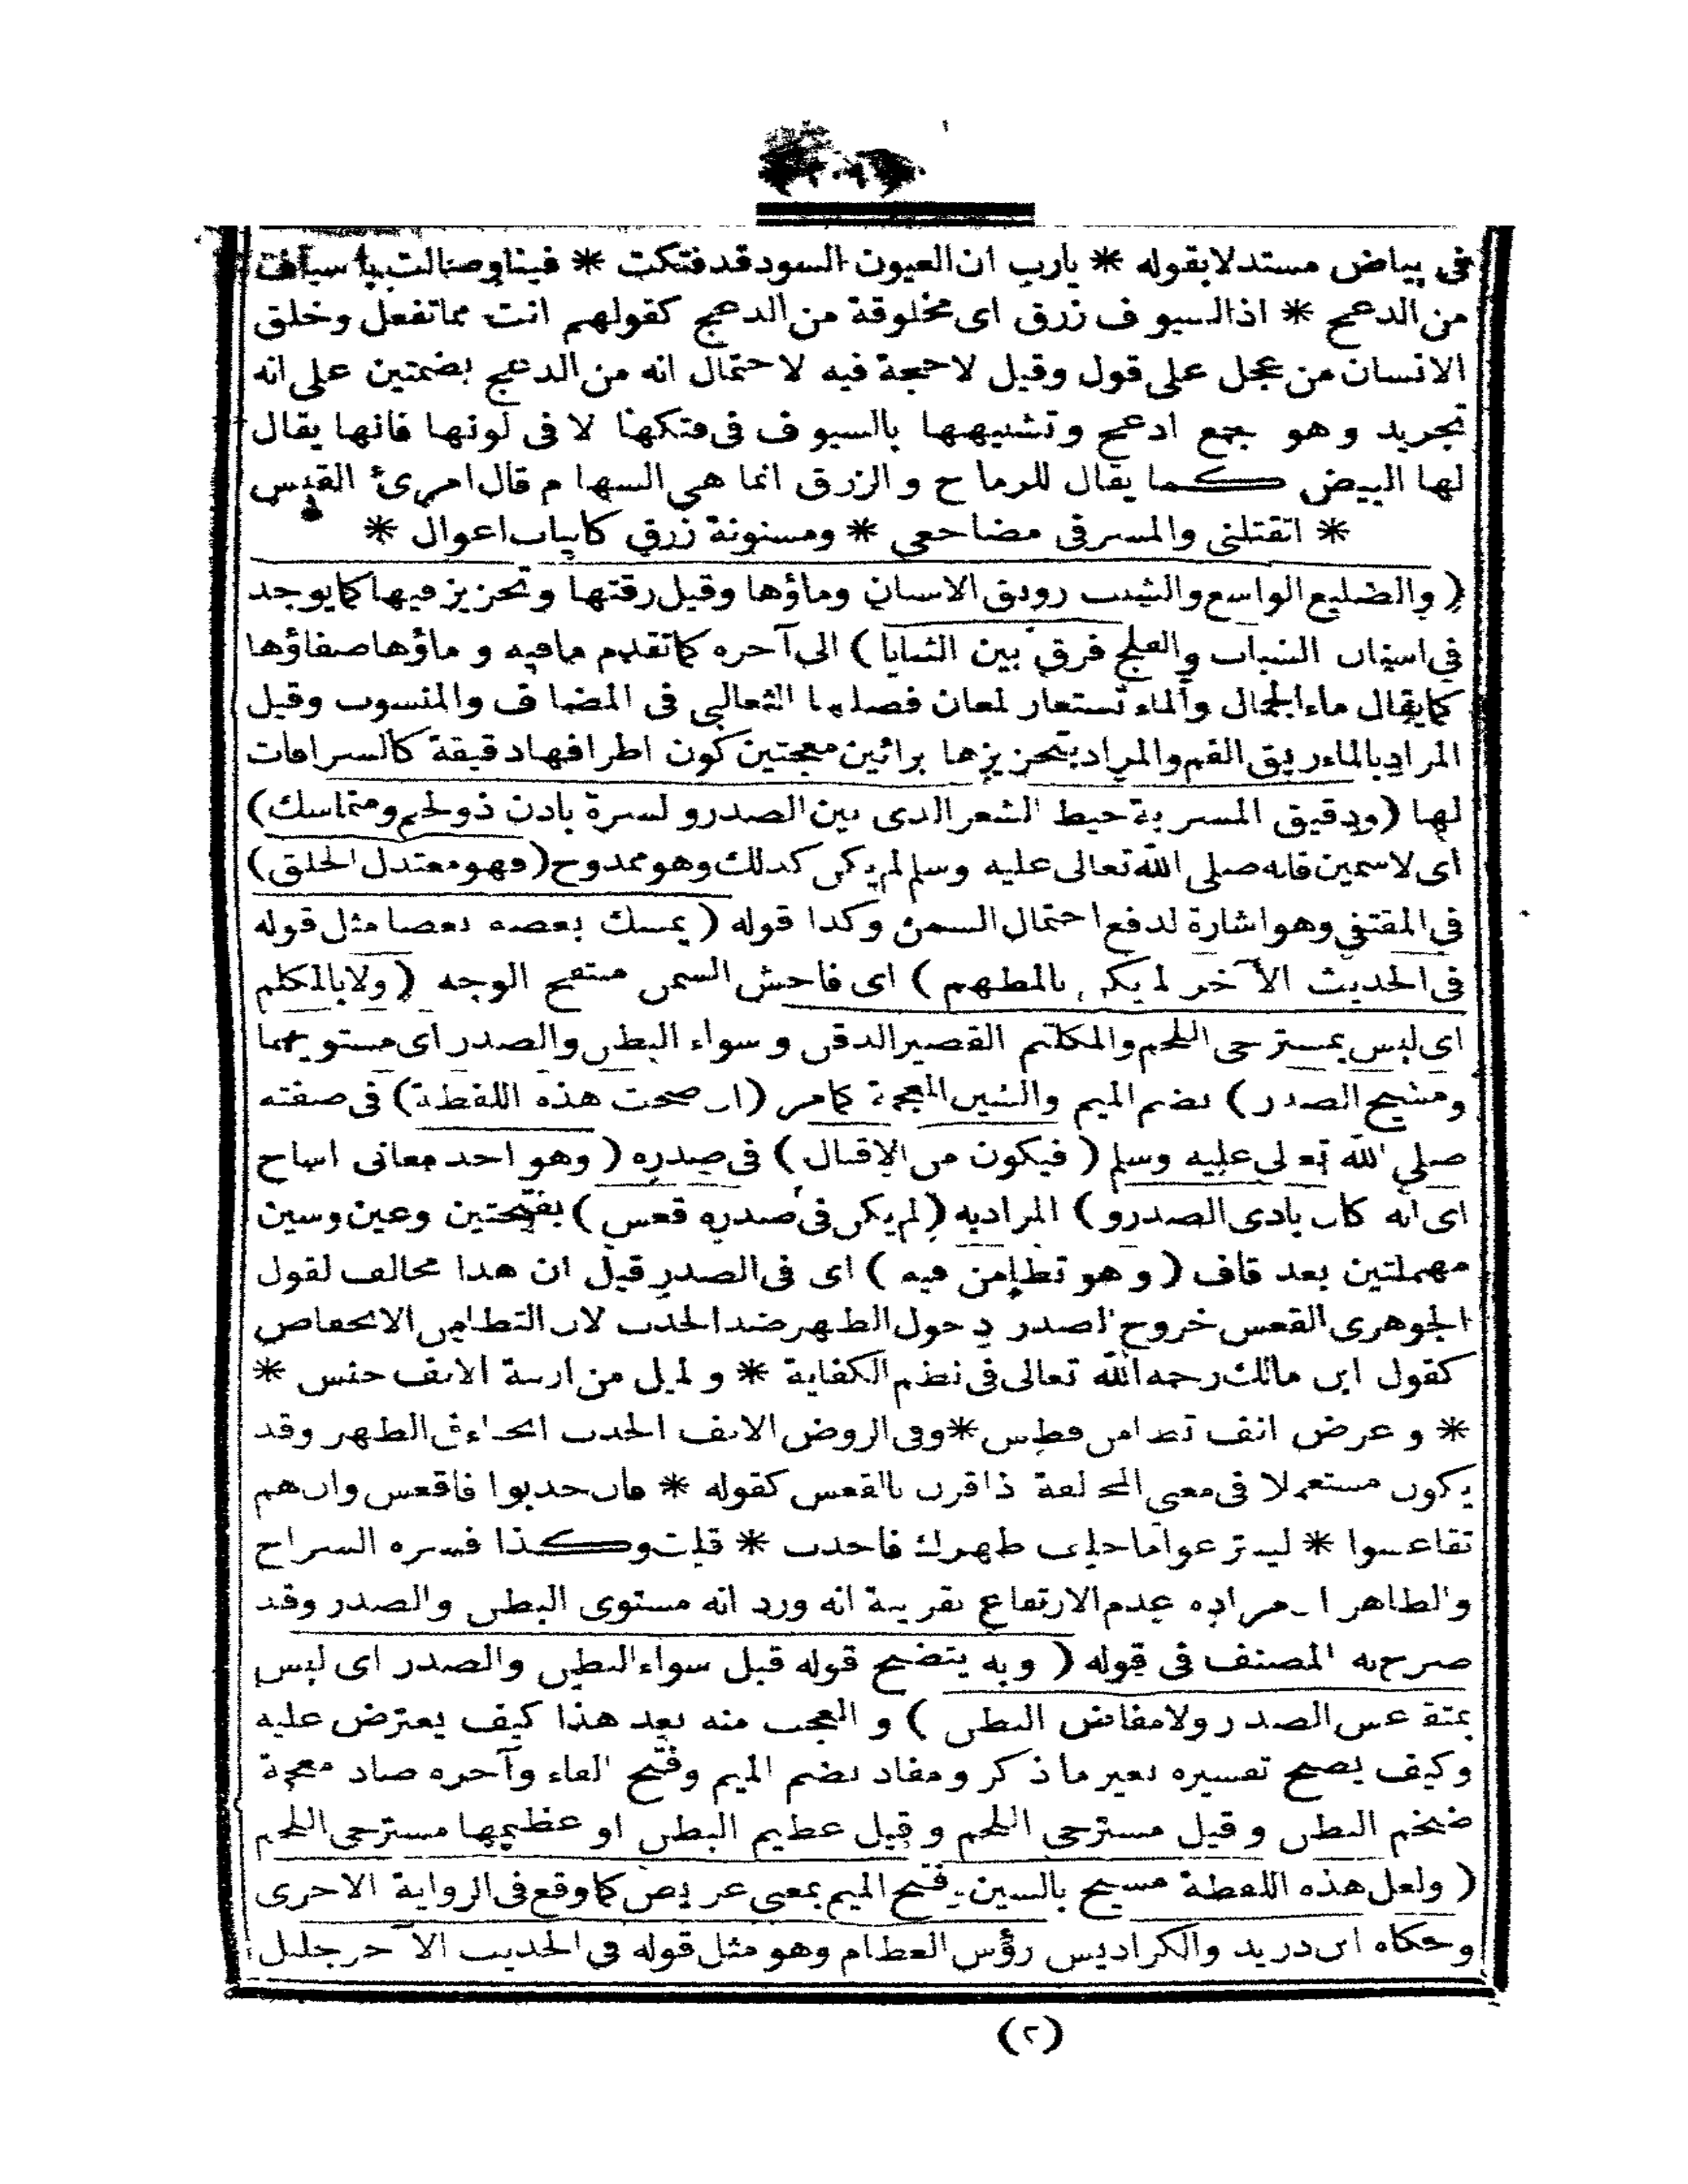 فى بياض مستدلا بقوله * يارب ان العيون السود قد فتكت * فينا وصالت باسياف
من الدعج * اذ السيوف زرق اى مخلوقة من الدعج كقولهم انت مما تفعل وخلق
الانسان من عجل على قول وقيل لا حجة فيه لاحتمال انه من الدعج بضمتين على انه
تجريد وهو جمع ادعج وتشبيهها بالسيوف فى فتكها لا فى لونها فانها يقال
لها البيض كما يقال للرماح والزرق انما هى السهام قال امرئ القيس
* اتقتلنى والمسرفى مضاجعى * ومسنونة زرق كانياب اعوال *
( والضليع الواسع والشنب رونق الاسنان وماؤها وقيل رقتها وتحزيز فيها كما يوجد
فى اسنان الشباب والفلج فرق بين الثنايا ) الى آخره كما تقدم مافيه و ماؤها صفاؤها
كما يقال ماء الجمال والماء تستعار لمعان فصلها الثعالبى فى المضاف والمنسوب وقيل
المراد بالماء ريق الفم والمراد بتحزيزها برائين معجمتين كون اطرافها دقيقة كالسرافات
لها ( ودقيق المسربة خيط الشعر الذى بين الصدر و لسرة بادن ذو لحم ومتماسك )
اى لا سمين فانه صلى الله تعالى عليه وسلم لم يكن كذلك وهو ممدوح ( فهو معتدل الخلق )
فى المقتفى وهو اشارة لدفع احتمال السمن وكذا قوله ( يمسك بعضه بعضا مثل قوله
فى الحديث الآخر لم يكن بالمطهم ) اى فاحش السمن منتفخ الوجه ( ولا بالمكلثم
اى ليس بمسترخى اللحم والمكلثم القصير الذقن و سواء البطن والصدر اى مستويهما
ومشيح الصدر ) بضم الميم والشين المعجمة كما مر ( ان صحت هذه اللفظة ) فى صفته
صلى الله تعالى عليه وسلم ( فيكون من الاقبال ) فى صدره ( وهو احد معانى اشاح
اى انه كان بادى الصدر و ) المراد به ( لم يكن فى صدره قعس ) بفتحتين وعين وسين
مهملتين بعد قاف ( وهو تطامن فيه ) اى فى الصدر قيل ان هذا مخالف لقول
الجوهرى القعس خروج الصدر ودخول الظهر ضد الحدب لان التطامن الانخفاض
كقول ابن مالك رحمه الله تعالى فى نظم الكفاية * و لميل من ارنبة الانف خنس *
* و عرض انف تطامن فطس * وفى الروض الانف الحدب انحناء فى الظهر وقد
يكون مستعملا فى معنى المخالفة اذا قرن بالقعس كقوله * فان حدبوا فاقعس وان هم
تقاعسوا * لينتزعوا ما خلف ظهرك فاحدب * قلت وكذا فسره السراج
والظاهر ان مراده عدم الارتفاع بقرينة انه ورد انه مستوى البطن والصدر وقد
صرح به المصنف فى قوله ( وبه يتضح قوله قبل سواء البطن والصدر اى ليس
بمتقاعس الصدر ولا مفاض البطن ) و العجب منه بعد هذا كيف يعترض عليه
وكيف يصح تفسيره بغير ما ذكر ومفاد بضم الميم وفتح الفاء وآخره ضاد معجمة
ضخم البطن وقيل مسترخى اللحم وقيل عظيم البطن او عظيمها مسترخى اللحم
( ولعل هذه اللفظة مسيح بالسين وفتح الميم بمعنى عريض كما وقع فى الرواية الاخرى
وحكاه ابن دريد والكراديس رؤس العظام وهو مثل قوله فى الحديث الآخر جليل
(٢)